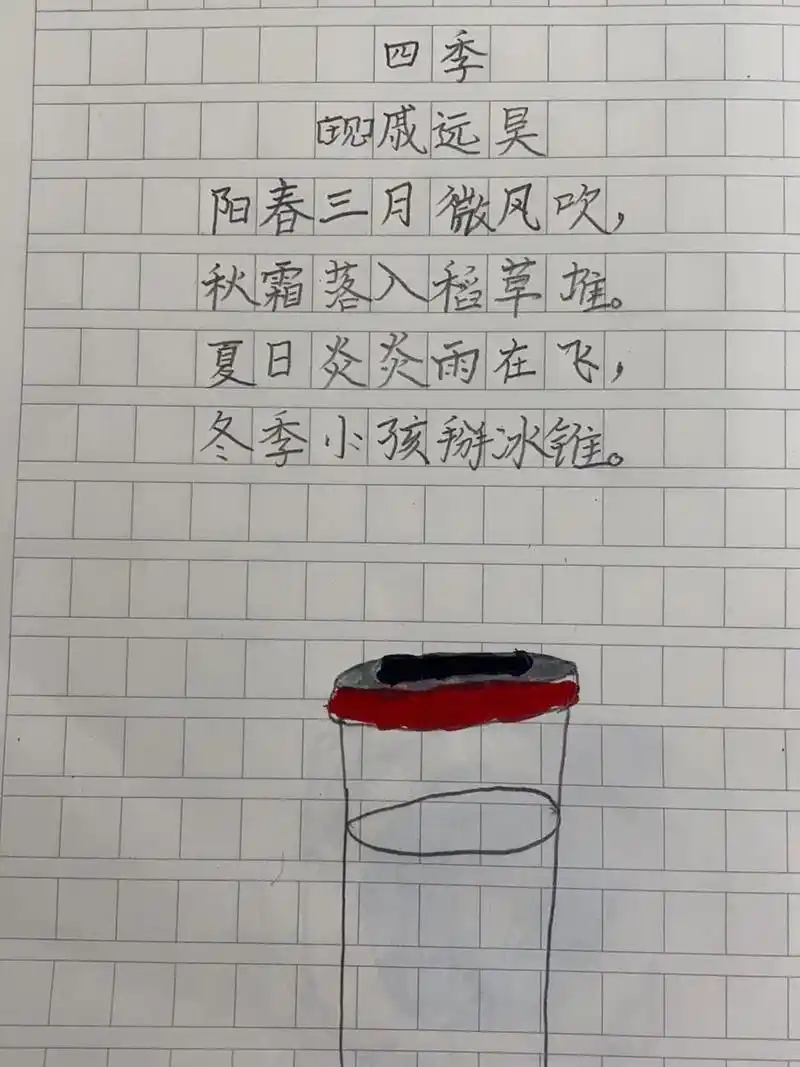 四季
[现]戚远昊
阳春三月微风吹，
秋霜落入稻草堆。
夏日炎炎雨在飞，
冬季小孩掰冰锥。